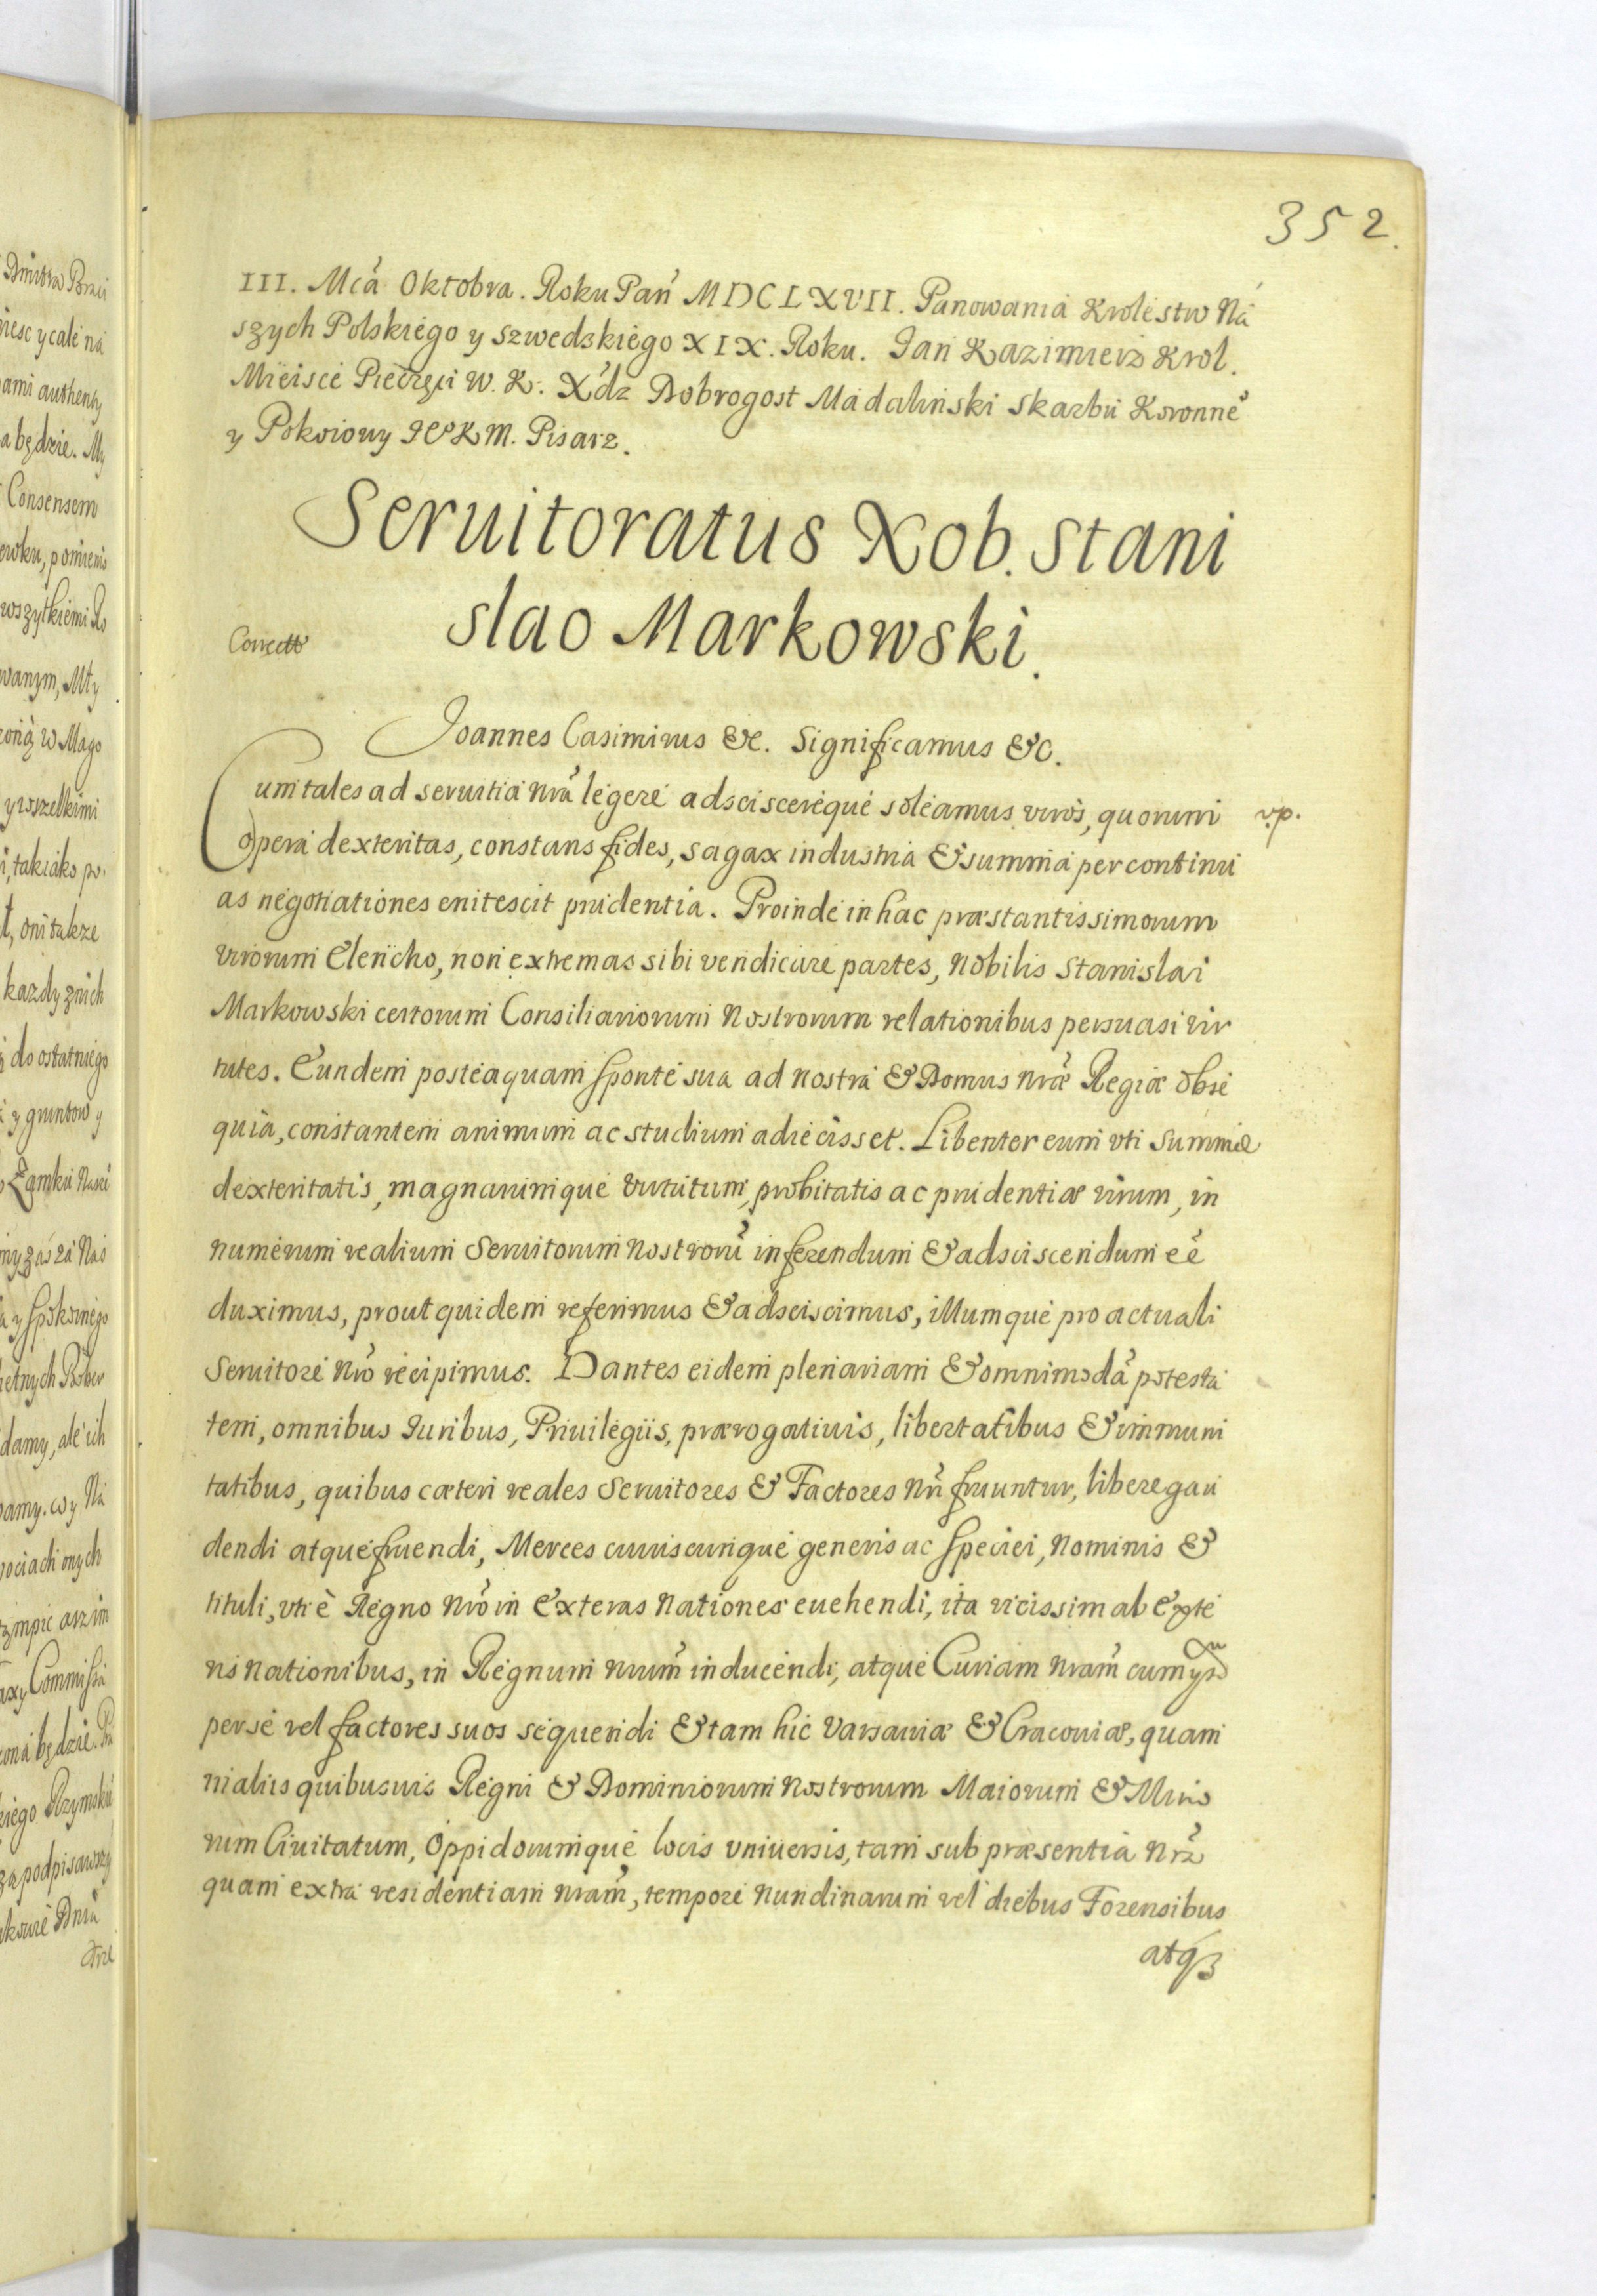 352.
III. Mcá Oktobra. Roku Pań MDCLXVII. Panowania Krolestw Ná
szych Polskiego y Szwedzkiego XIX. Roku. Jan Kazimierz Krol.
Mieisce Pieczęci W. K. Xdz Dobrogost Madaliński Skarbu Koronne
y Pokoiowy JeoKM. Pisarz.
Seruitoratus Nob. Stani
slao Markowski.
Correctt
Joannes Casimirus &c. Significamus &c.
Cum tales ad seruitia nrá legere adsciscereque soleamus viros, quorum
v.p.
opera dexteritas, constans fides, sagax industria & summa per continu
as negotiationes enitescit prudentia. Proinde in hac præstantissimorum
virorum Elencho, non extremas sibi vendicare partes, Nobilis Stanislai
Markowski certorum Consiliariorum Nostrorum relationibus persuasi vir
tutes. Eundem posteaquam sponte sua ad nostra & Domus nræ Regiæ obse
quia, constantem animum ac studium adiecisset. Libenter eum vti summæ
dexteritatis, magnarumque virtutum, probitatis ac prudentiæ virum, in
numerum realium Seruitorum Nostrorũ inferendum & adsciscendum eé
duximus, prout quidem referimus & adsciscimus, illumque pro actuali
Seruitore nró recipimus. Dantes eidem plenariam & omnimodã potesta
tem, omnibus Iuribus, Priuilegiis, prærogatiuis, libertatibus & immuni
tatibus, quibus cæteri reales Seruitores & Factores nrĩ fruuntur, libere gau
dendi atque fruendi, Merces cuiuscunque generis ac speciei, Nominis &
tituli, vti è Regno nró in Exteras Nationes euehendi, ita vicissim ab Exte
ris nationibus, in Regnum nrum inducendi, atque Curiam nram cum ys
per se vel factores suos sequendi & tam hic Varsauiæ & Cracouiæ, quam
in aliis quibusuis Regni & Dominiorum Nostrorum Maiorum & Mino
rum Ciuitatum, Oppidorumque locis vniuersis, tam sub præsentia nrã
quam extra residentiam nram, tempore Nundinarum vel diebus Forensibus
atqꝫ